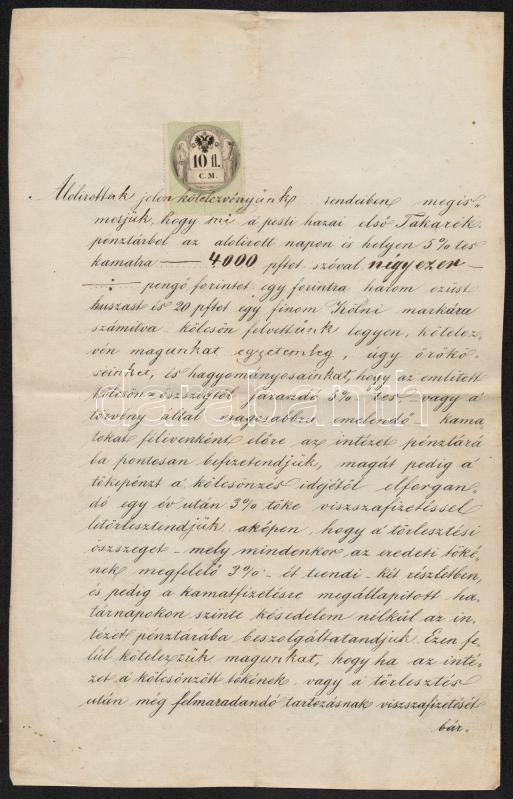 10 fl.
C. M.
Alolirottak jelen kötelezvényünk rendeiben megis-
merjük, hogy mi a pesti hazai első Takarék
pénztárból az alolirott napon és helyen 5% tes
kamatra — 4000 pftot szóval négyezer —
— pengő forintot egy forintra három ezüst
huszast és 20 pftot egy finom Kölni markára
számitva kölcsön felvettünk legyen, kötelez-
vén magunkat egyetemleg, úgy örökö-
seinket, és hagyományosainkat, hogy az emlitett
kölcsön-öszszegtől járandó 5% tes vagy a
törvény által magosabbra emelendő kama
tokat félévenként előre az intézet pénztárá
ba pontosan befizetendjük, magát pedig a
tőkepénzt a kölcsönzés idejétől elforgan-
dó egy év után 3% tőke viszszafizetéssel
letörlesztendjük akópen, hogy a törlesztési
öszszeget – mely mindenkor az eredeti tőké-
nek megfelelő 3%-ét teendi – két részletben,
és pedig a kamatfizetésre megállapitott ha-
tárnapokon szinte késedelem nélkül az in-
tézet pénztárába beszolgáltatandjuk. Ezen fe-
lül kötelezzük magunkat, hogy ha az inté-
zet a kölcsönzött tőkének vagy a törlesztés
után még felmaradandó tartozásnak viszszafizetését
bár.
darabanth